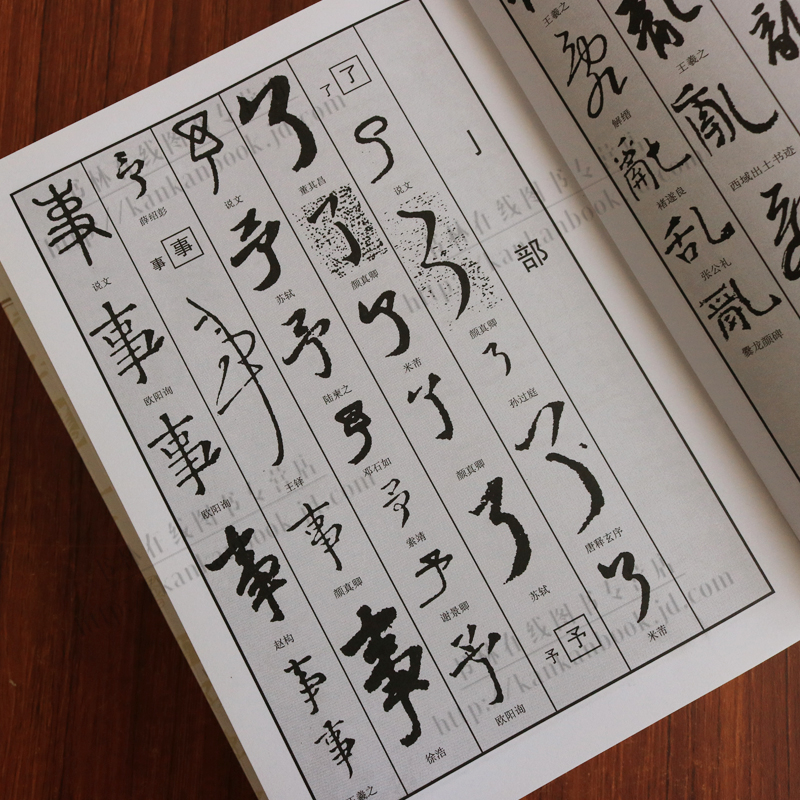 王羲之
乱
西域出土书迹
王羲之
解缙
褚遂良
张公礼
爨龙颜碑
亅
部
了 了
说文
颜真卿
孙过庭
唐释玄序
米芾
董其昌
颜真卿
米芾
颜真卿
苏轼
予 予
说文
苏轼
陆柬之
邓石如
索靖
谢景卿
欧阳询
薛绍彭
事 事
王铎
颜真卿
徐浩
说文
欧阳询
欧阳询
赵构
王羲之
林在线图书专营店
http://kankanbook.jd.com